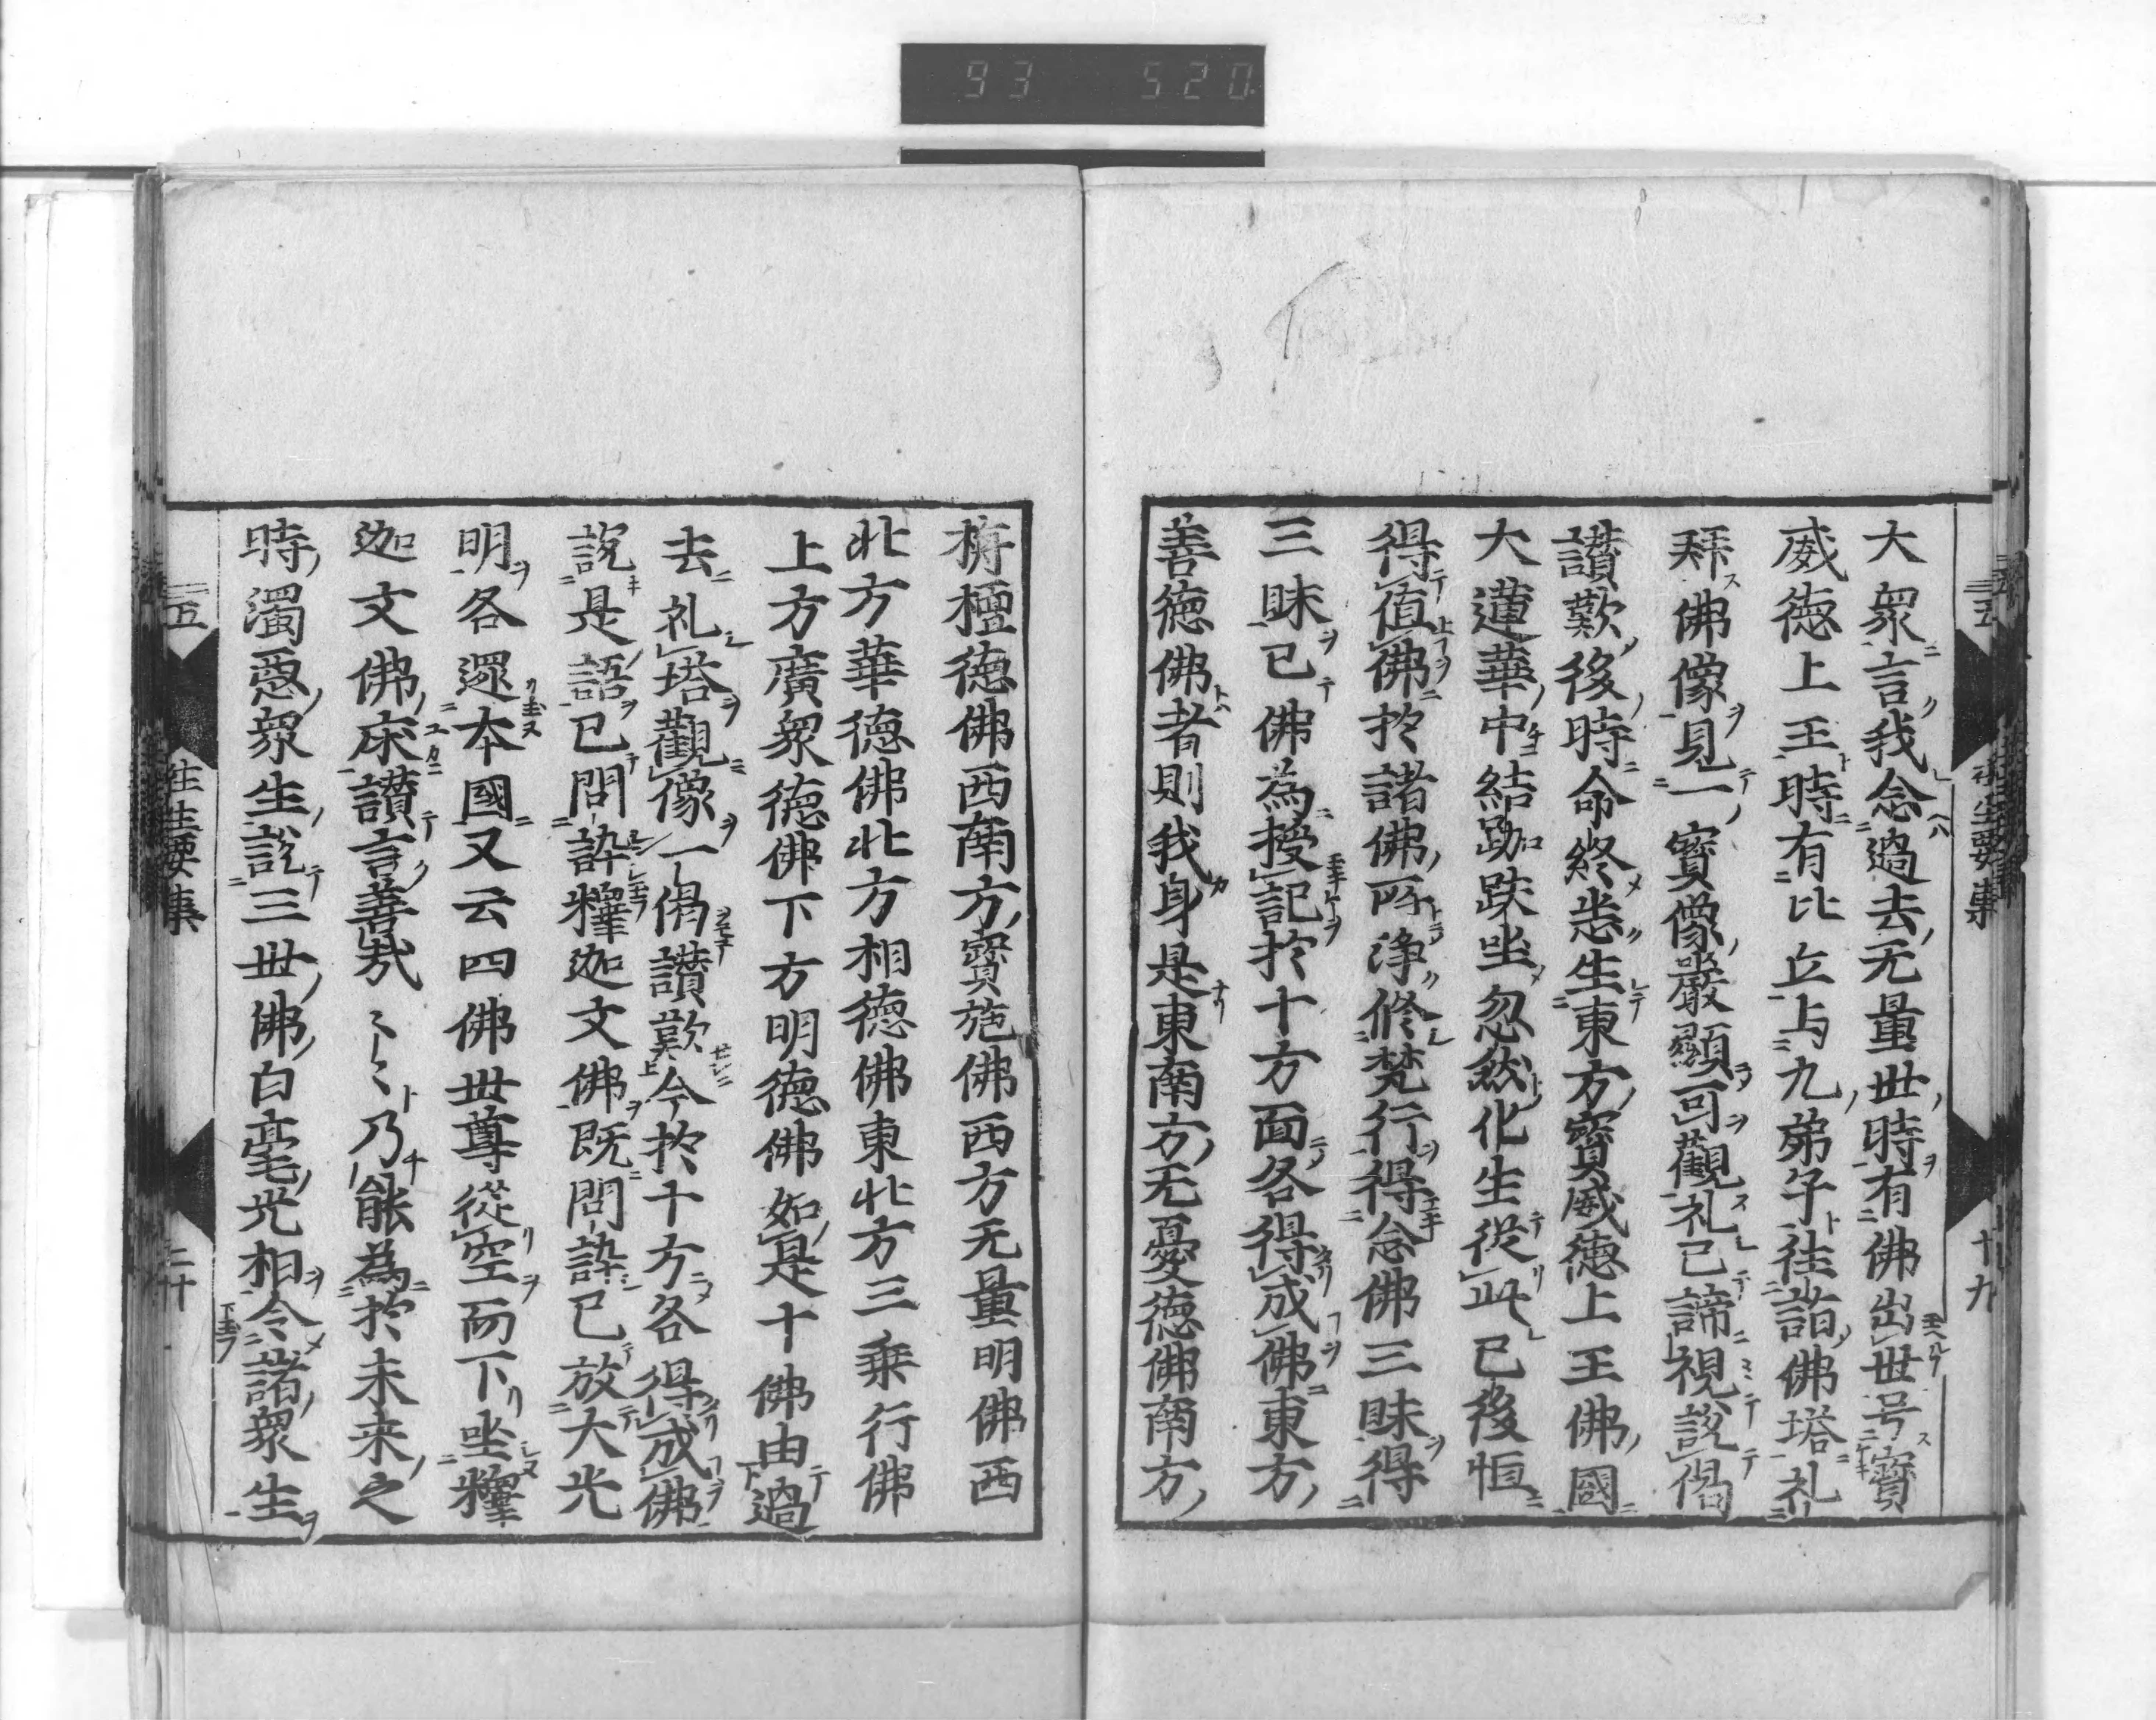 大衆言我念過去无量世時有佛出世号寳
威徳上王時有比丘与九弟子往詣佛塔礼
拜佛像見一寳像嚴顯可觀礼已諦視説偈
讃歎後時命終悉生東方寳威徳上王佛國
大蓮華中結跏趺坐忽然化生従此已後恒
得値佛扵諸佛所浄修梵行得念佛三昧得
三昧已佛為授記扵十方面各得成佛東方
善徳佛者則我身是東南方无憂徳佛南方
栴檀徳佛西南方寳施佛西方无量明佛西
北方華徳佛北方相徳佛東北方三乗行佛
上方廣衆徳佛下方明徳佛如是十佛由過
去礼塔觀像一偈讃歎今扵十方各得成佛
説是語已問訊釋迦文佛既問訊已放大光
明各還本國又云四佛世尊従空而下坐釋
迦文佛床讃言善哉〻〻乃能為扵未来之
時濁惡衆生説三世佛白毫光相令諸衆生
五
往生要集
十九
五
往生要集
二十
93 520